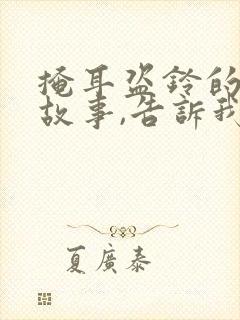 掩耳盜鈴的
故事,告訴我
夏廣泰